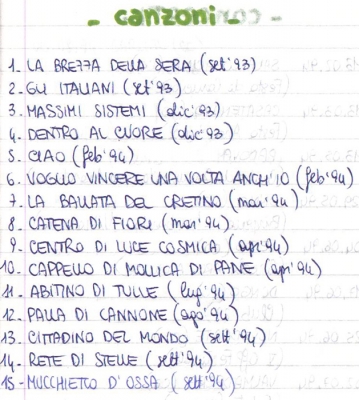 - canzoni -
1- LA BREZZA DELLA SERA (set '93)
2- GLI ITALIANI (set '93)
3- MASSIMI SISTEMI (dic '93)
4- DENTRO AL CUORE (dic '93)
5- CIAO (feb '94)
6- VOGLIO VINCERE UNA VOLTA ANCH'IO (feb '94)
7- LA BALLATA DEL CRETINO (mar '94)
8- CATENA DI FIORI (mar '94)
9- CENTRO DI LUCE COSMICA (apr '94)
10- CAPPELLO DI MOLLICA DI PANE (apr '94)
11- ABITINO DI TULLE (lug '94)
12- PALLA DI CANNONE (ago '94)
13- CITTADINO DEL MONDO (sett '94)
14- RETE DI STELLE (sett '94)
15- MUCCHIETTO D'OSSA (sett '94)